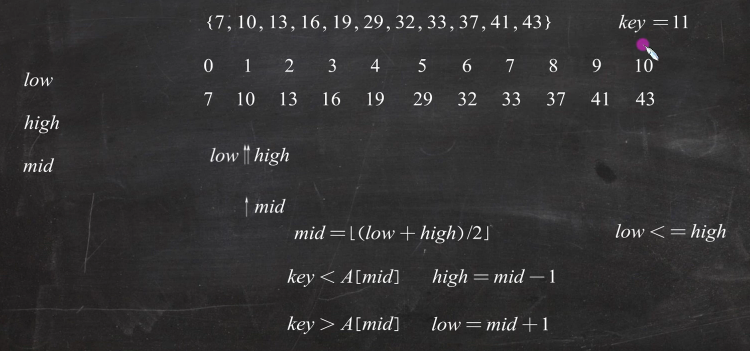 {7, 10, 13, 16, 19, 29, 32, 33, 37, 41, 43} key = 11
0 1 2 3 4 5 6 7 8 9 10
low
7 10 13 16 19 29 32 33 37 41 43
high
low ⇈ high
mid
↑ mid
mid = ⌊(low + high)/2⌋ low < = high
key < A[mid] high = mid − 1
key > A[mid] low = mid + 1